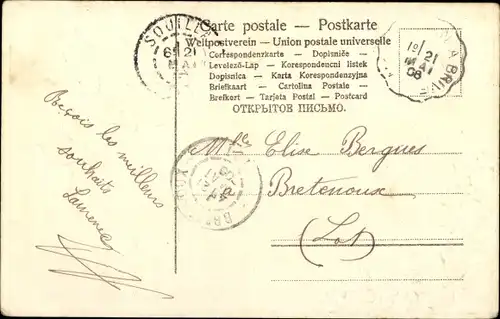 Carte postale – Postkarte
Weltpostverein – Union postale universelle
Correspondenzkarte – Dopisnice
Levelező-Lap – Korespondencni listek
Dopisnica – Karta Korespondenzyjna
Briefkaart – Cartolina Postale –
Brefkort – Tarjeta Postal – Postcard
ОТКРЫТОЕ ПИСЬМО.
SOUILL
21
21
MAI
06
Mlle Elise Bergues
à
Bretenoux
(Lot)
Reçois les meilleurs
souhaits
Laurence